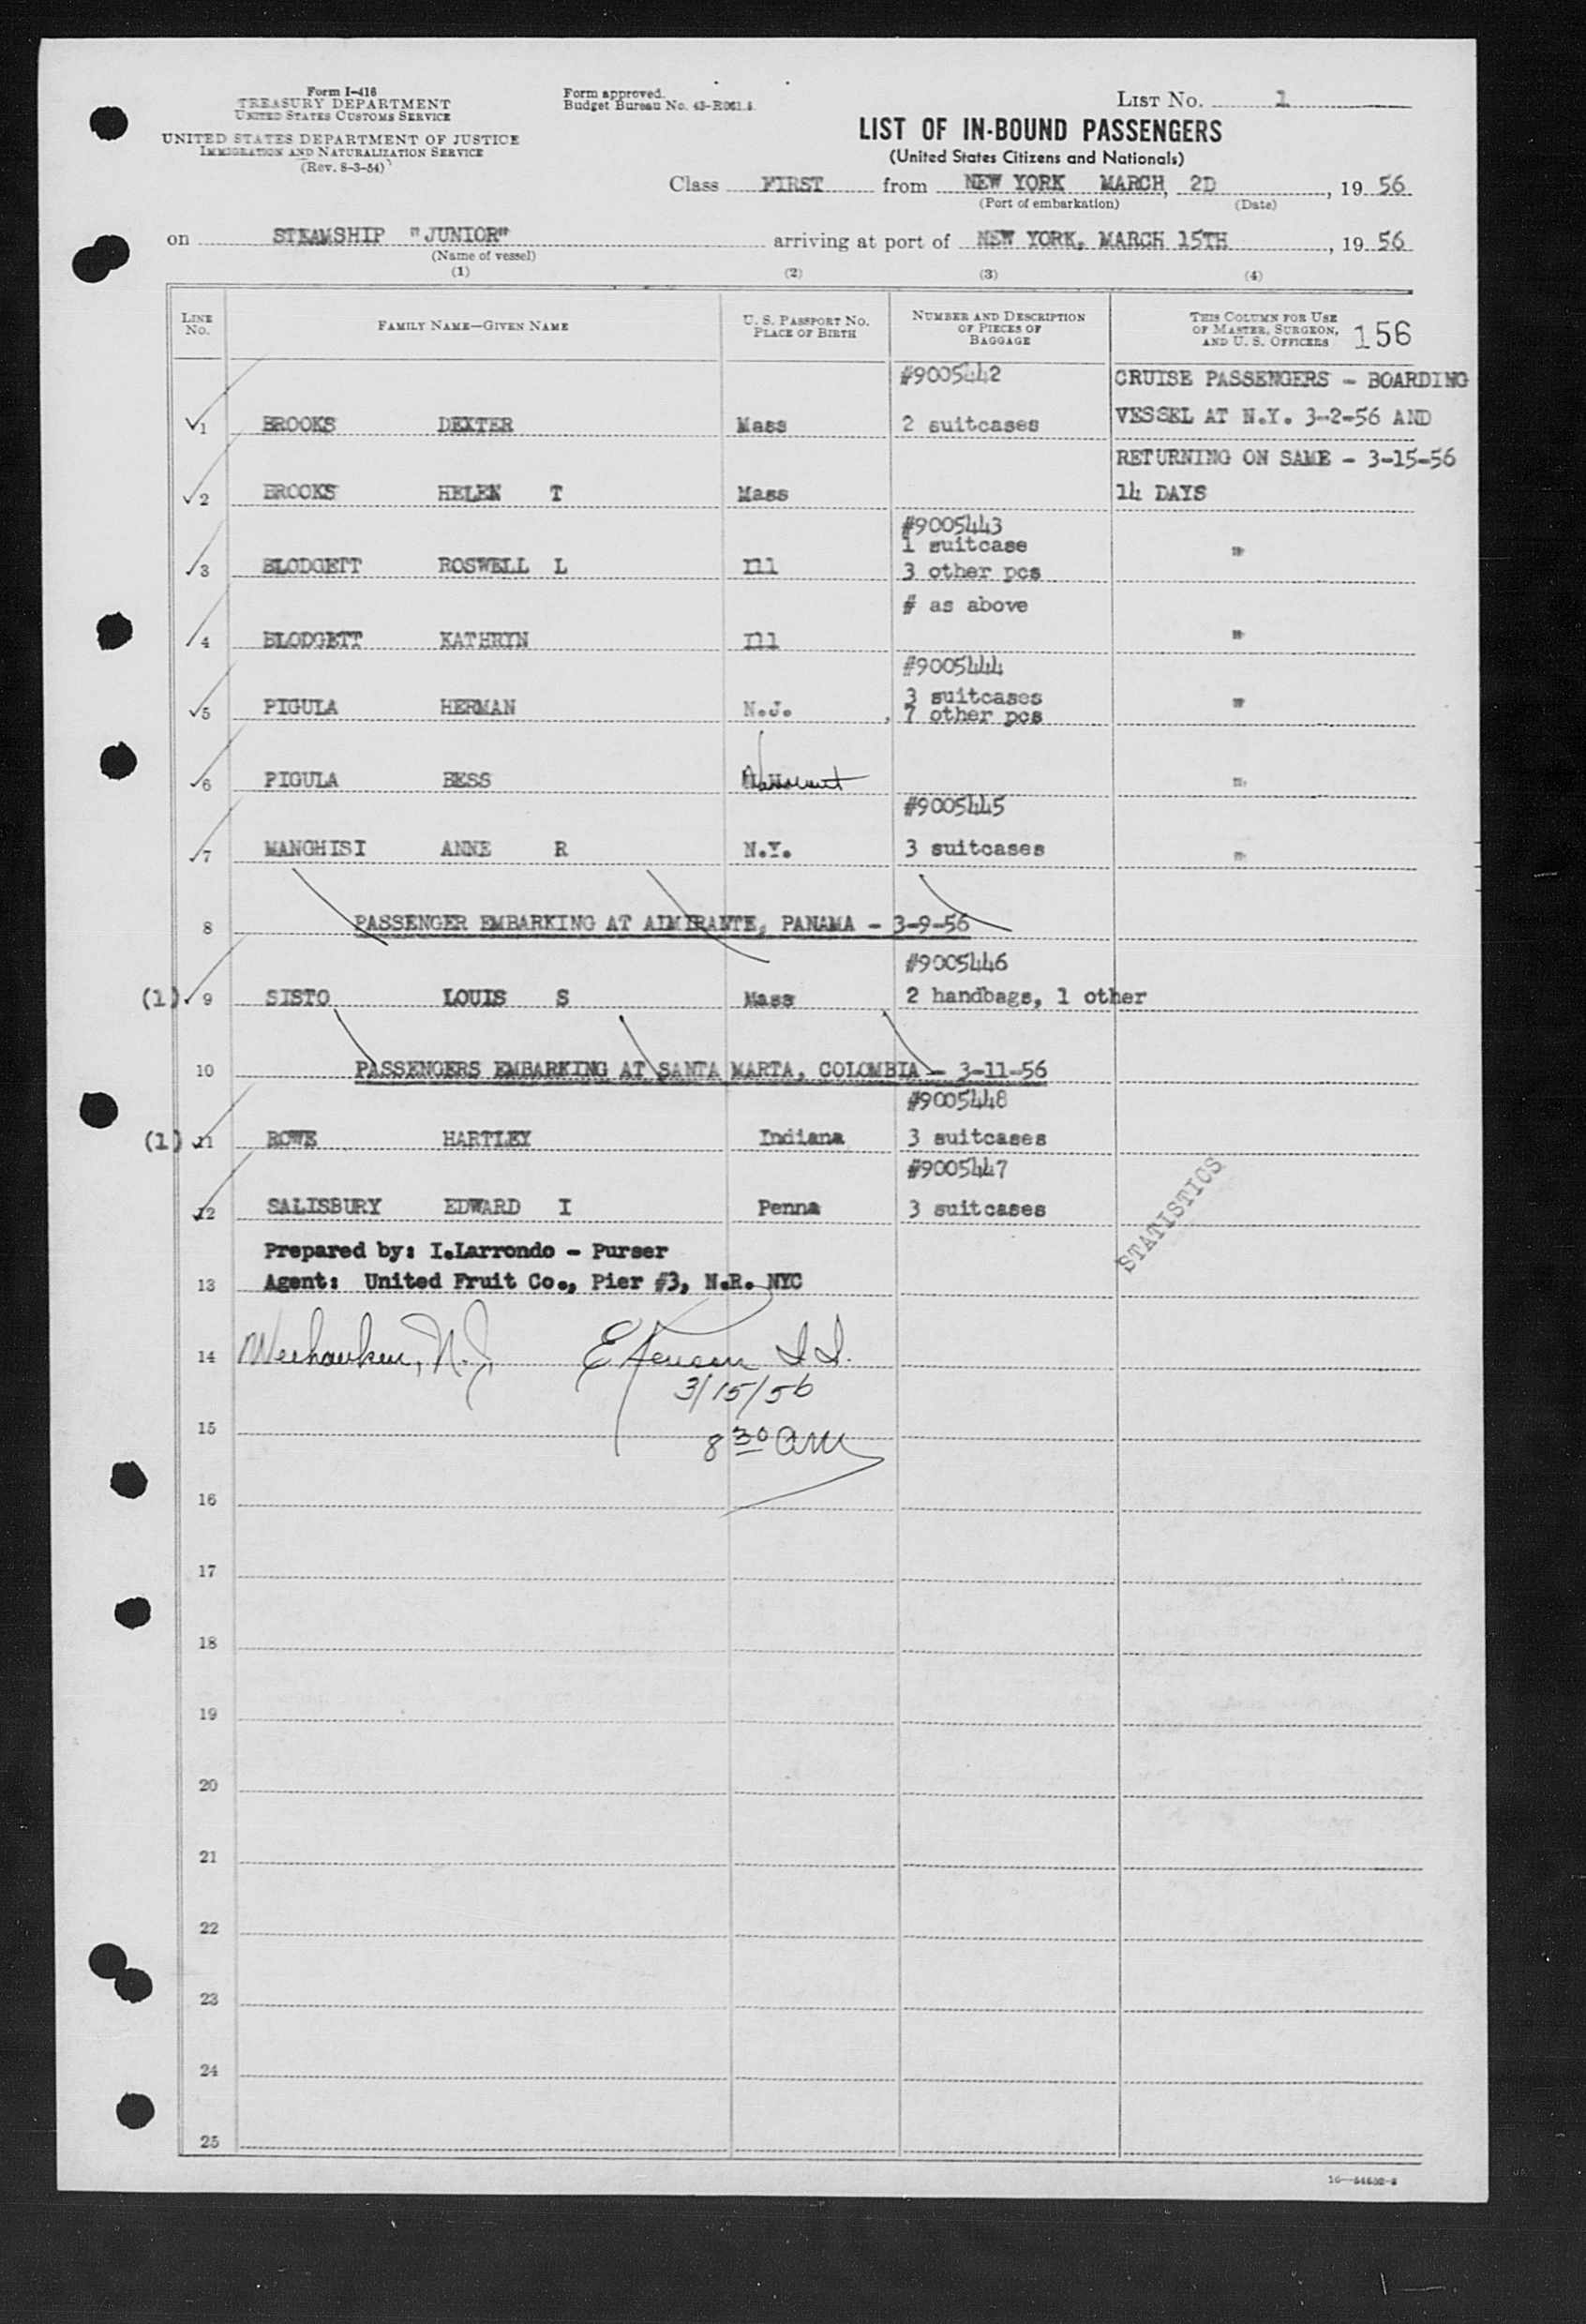 Form I-416
TREASURY DEPARTMENT
UNITED STATES CUSTOMS SERVICE
UNITED STATES DEPARTMENT OF JUSTICE
IMMIGRATION AND NATURALIZATION SERVICE
(Rev. 8-3-54)
Form approved.
Budget Bureau No. 43-R061.5.
LIST NO. 1
LIST OF IN-BOUND PASSENGERS
(United States Citizens and Nationals)
Class FIRST from NEW YORK MARCH, 2D, 19 56
(Port of embarkation) (Date)
on STEAMSHIP "JUNIOR" arriving at port of NEW YORK, MARCH 15TH, 19 56
(Name of vessel)
(1) (2) (3) (4)
LINE NO. FAMILY NAME—GIVEN NAME U. S. PASSPORT NO. PLACE OF BIRTH NUMBER AND DESCRIPTION OF PIECES OF BAGGAGE THIS COLUMN FOR USE OF MASTER, SURGEON, AND U. S. OFFICERS 156
#9005442 CRUISE PASSENGERS - BOARDING
1 BROOKS DEXTER Mass 2 suitcases VESSEL AT N.Y. 3-2-56 AND
RETURNING ON SAME - 3-15-56
2 BROOKS HELEN T Mass 14 DAYS
#9005443
1 suitcase "
3 BLODGETT ROSWELL L Ill 3 other pcs
# as above
4 BLODGETT KATHRYN Ill "
#9005444
3 suitcases
5 PIGULA HERMAN N.J. 7 other pcs "
6 PIGULA BESS "
#9005445
7 MANGHISI ANNE R N.Y. 3 suitcases "
8 PASSENGER EMBARKING AT ALMIRANTE, PANAMA - 3-9-56
#9005446
(1) 9 SISTO LOUIS S Mass 2 handbags, 1 other
10 PASSENGERS EMBARKING AT SANTA MARTA, COLOMBIA - 3-11-56
#9005448
(1) 11 ROWE HARTLEY Indiana 3 suitcases
#9005447
12 SALISBURY EDWARD I Penna 3 suitcases
STATISTICS
Prepared by: I.Larrondo - Purser
13 Agent: United Fruit Co., Pier #3, N.R. NYC
14 Weehawken, N.J. E I.I.
3/15/56
15
8 30 am
16
17
18
19
20
21
22
23
24
25